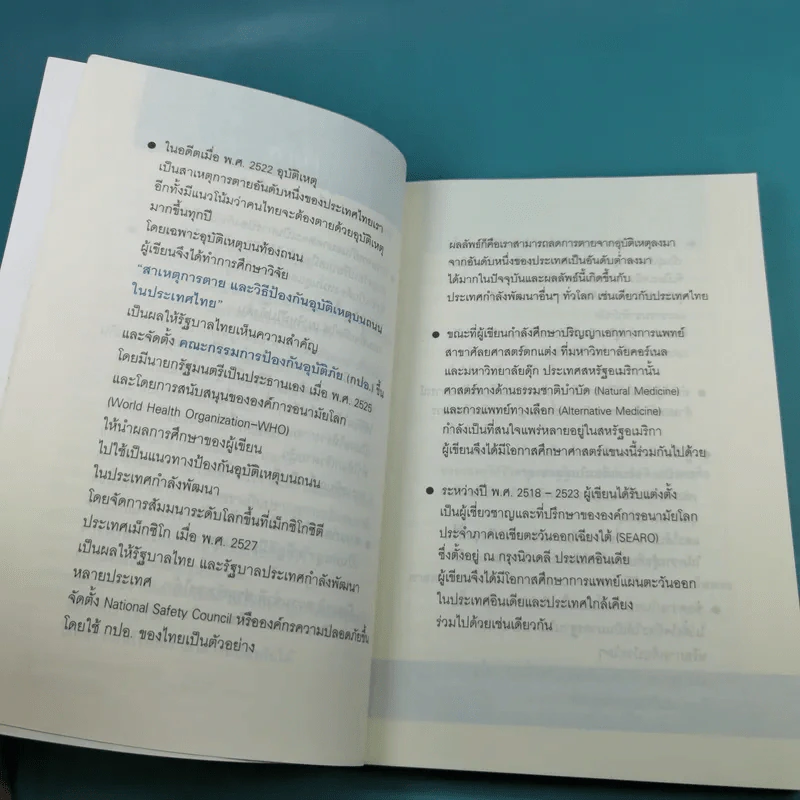 ● ในอดีตเมื่อ พ.ศ. 2522 อุบัติเหตุ
เป็นสาเหตุการตายอันดับหนึ่งของประเทศไทยเรา
อีกทั้งมีแนวโน้มว่าคนไทยจะต้องตายด้วยอุบัติเหตุ
มากขึ้นทุกปี
โดยเฉพาะอุบัติเหตุบนท้องถนน
ผู้เขียนจึงได้ทำการศึกษาวิจัย
"สาเหตุการตาย และวิธีป้องกันอุบัติเหตุบนถนน
ในประเทศไทย"
เป็นผลให้รัฐบาลไทยเห็นความสำคัญ
และจัดตั้ง คณะกรรมการป้องกันอุบัติภัย (กปอ.) ขึ้น
โดยมีนายกรัฐมนตรีเป็นประธานเอง เมื่อ พ.ศ. 2525
และโดยการสนับสนุนขององค์การอนามัยโลก
(World Health Organization-WHO)
ให้นำผลการศึกษาของผู้เขียน
ไปใช้เป็นแนวทางป้องกันอุบัติเหตุบนถนน
ในประเทศกำลังพัฒนา
โดยจัดการสัมมนาระดับโลกขึ้นที่เม็กซิโกซิตี
ประเทศเม็กซิโก เมื่อ พ.ศ. 2527
เป็นผลให้รัฐบาลไทย และรัฐบาลประเทศกำลังพัฒนา
หลายประเทศ
จัดตั้ง National Safety Council หรือองค์กรความปลอดภัยขึ้น
โดยใช้ กปอ. ของไทยเป็นตัวอย่าง
ผลลัพธ์ก็คือเราสามารถลดการตายจากอุบัติเหตุลงมา
จากอันดับหนึ่งของประเทศเป็นอันดับต่ำลงมา
ได้มากในปัจจุบันและผลลัพธ์นี้เกิดขึ้นกับ
ประเทศกำลังพัฒนาอื่นๆ ทั่วโลก เช่นเดียวกับประเทศไทย
● ขณะที่ผู้เขียนกำลังศึกษาปริญญาเอกทางการแพทย์
สาขาศัลยศาสตร์ตกแต่ง ที่มหาวิทยาลัยคอร์เนล
และมหาวิทยาลัยดุ๊ก ประเทศสหรัฐอเมริกานั้น
ศาสตร์ทางด้านธรรมชาติบำบัด (Natural Medicine)
และการแพทย์ทางเลือก (Alternative Medicine)
กำลังเป็นที่สนใจแพร่หลายอยู่ในสหรัฐอเมริกา
ผู้เขียนจึงได้มีโอกาสศึกษาศาสตร์แขนงนี้ร่วมกันไปด้วย
● ระหว่างปี พ.ศ. 2518 - 2523 ผู้เขียนได้รับแต่งตั้ง
เป็นผู้เชี่ยวชาญและที่ปรึกษาขององค์การอนามัยโลก
ประจำภาคเอเชียตะวันออกเฉียงใต้ (SEARO)
ซึ่งตั้งอยู่ ณ กรุงนิวเดลี ประเทศอินเดีย
ผู้เขียนจึงได้มีโอกาสศึกษาการแพทย์แผนตะวันออก
ในประเทศอินเดียและประเทศใกล้เคียง
ร่วมไปด้วยเช่นเดียวกัน